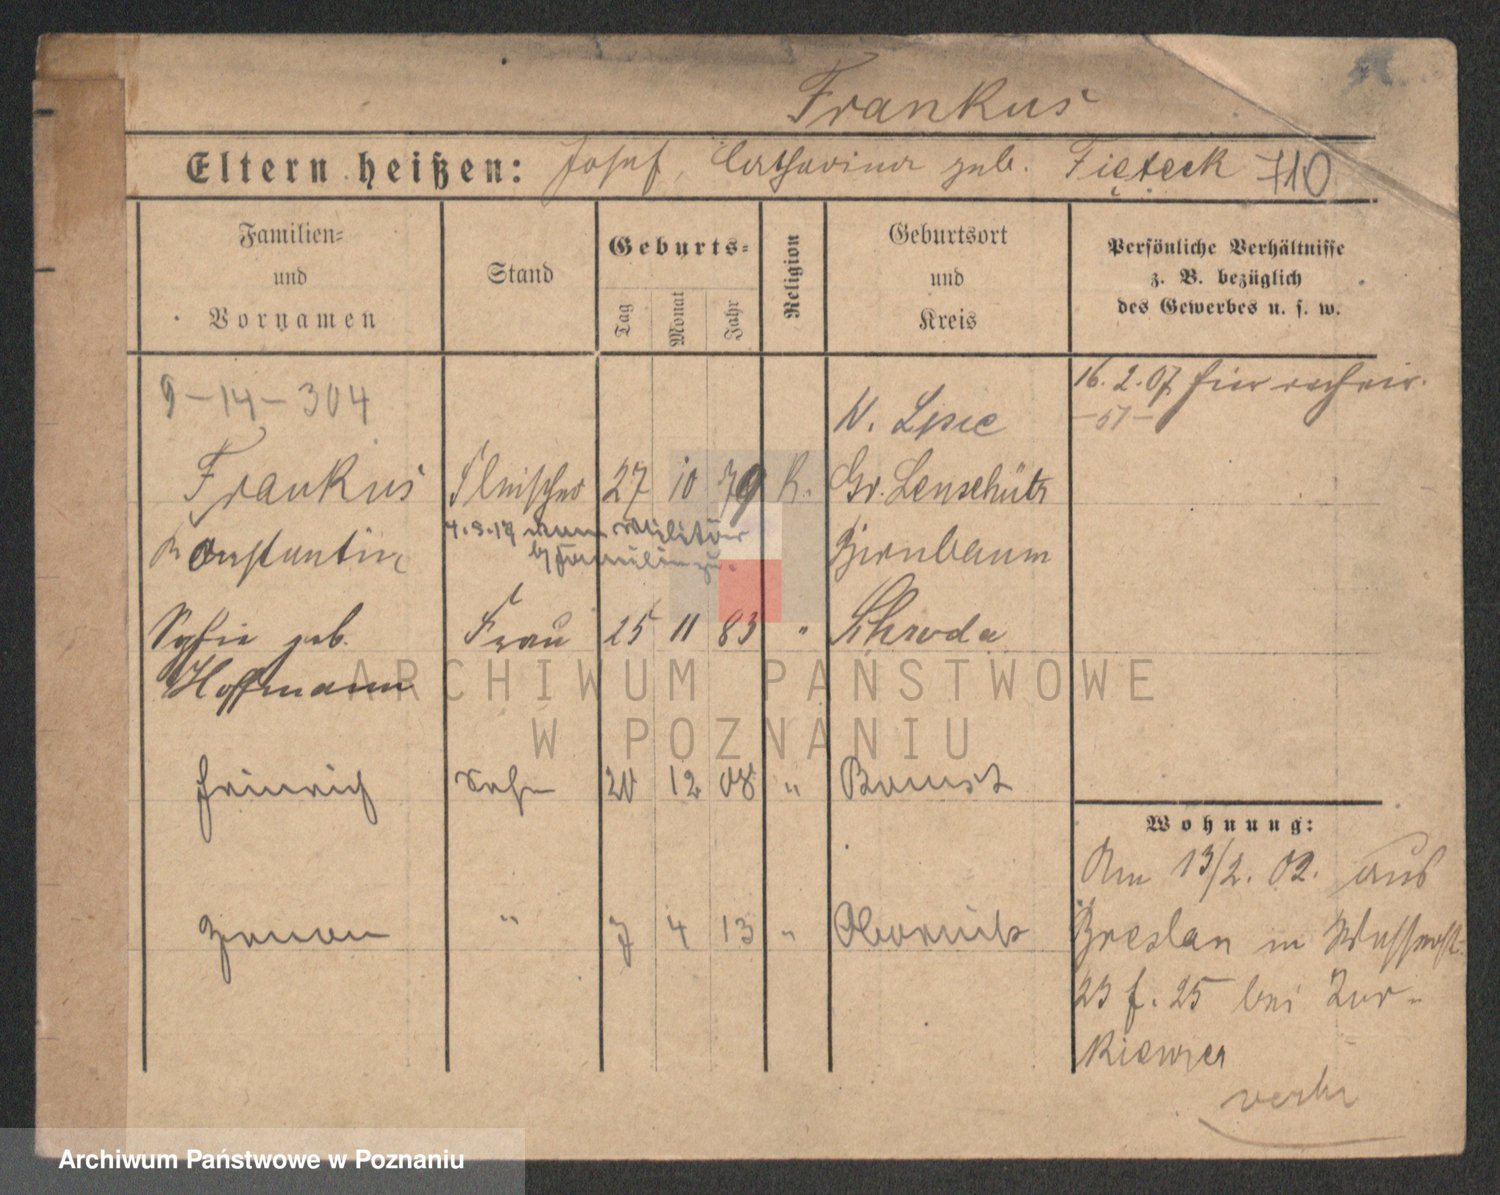 Frankus
Eltern heißen: Josef, Catharina geb. 710
Familien=
und
Vornamen
Stand
Geburts=
Tag
Monat
Jahr
Religion
Geburtsort
und
Kreis
Persönliche Verhältnisse
z. B. bezüglich
des Gewerbes u. s. w.
9-14-304
16. 2. 07 hier
-51-
Frankus Fleischer 27 10 79 K. Gr. Lenschütz
Konstantin Birnbaum
zum Militär
Sofie geb. Frau 25 11 83 " Schroda
Hoffmann
Heinrich Sohn 20 12 08 " Bomst
Zenon " 7 4 13 " Obornik
Wohnung:
Am 13/2. 02. aus
Breslau in Wasserst.
23 f. 25 bei Zur-
kiewicz
ARCHIWUM PAŃSTWOWE
W POZNANIU
Archiwum Państwowe w Poznaniu